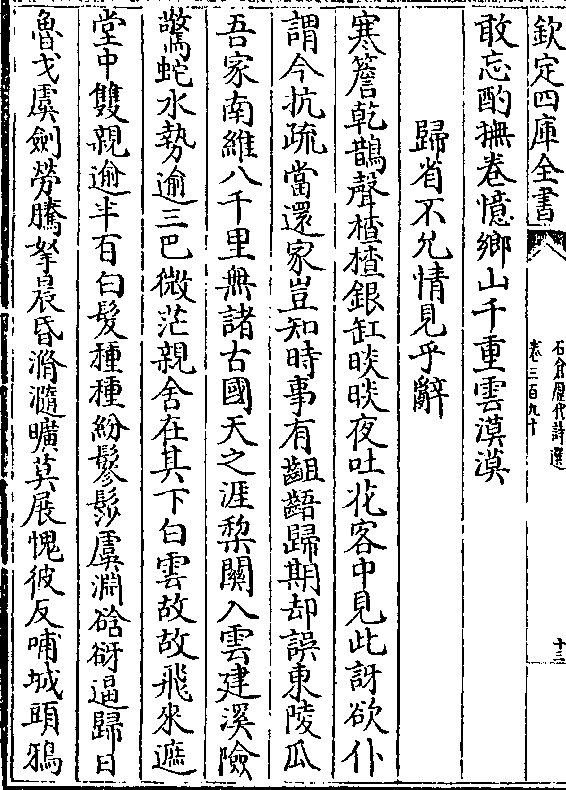 欽定四庫全書
石倉歷代詩選
卷三百九十
十三
敢忘酌撫卷憶鄉山千重雲漠漠
歸省不允情見乎辭
寒簷乾鵲聲楂楂銀缸晱晱夜吐花客中見此訝欲仆
謂今抗疏當還家豈知時事有齟齬歸期却誤東陵瓜
吾家南維八千里無諸古國天之涯棃關入雲建溪險
驚蛇水勢逾三巴微茫親舍在其下白雲故故飛來遮
堂中雙親逾半百白髮種種紛鬖髿虞淵硲谺逼歸日
魯戈虞劍勞騰拏晨昏滫瀡曠莫展愧彼反哺城頭鴉